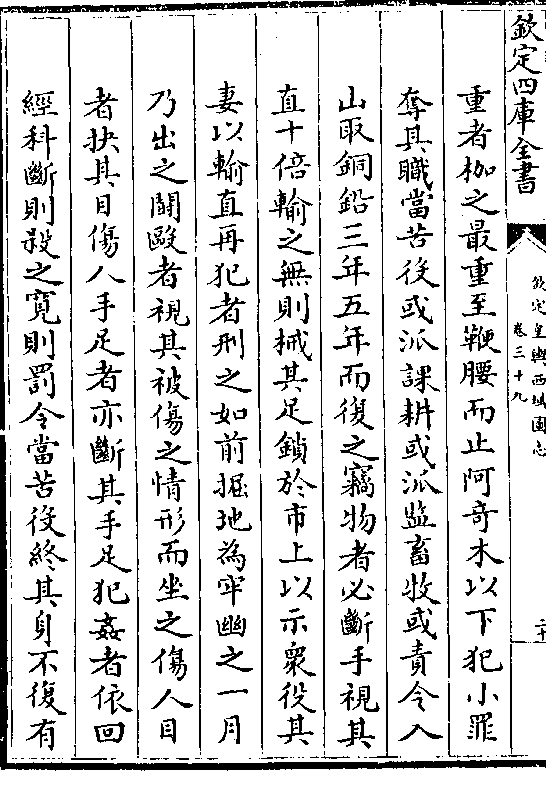 欽定四庫全書
欽定皇輿西域圖志
卷三十九
二十
重者枷之最重至鞭腰而止阿奇木以下犯小罪
奪其職當苦役或派課耕或派監畜牧或責令入
山取銅鉛三年五年而復之竊物者必斷手視其
直十倍輸之無則械其足鎖於市上以示衆役其
妻以輸直再犯者刑之如前掘地為牢幽之一月
乃出之鬭毆者視其被傷之情形而坐之傷人目
者抉其目傷人手足者亦斷其手足犯姦者依回
經科斷則殺之寛則罰令當苦役終其身不復有